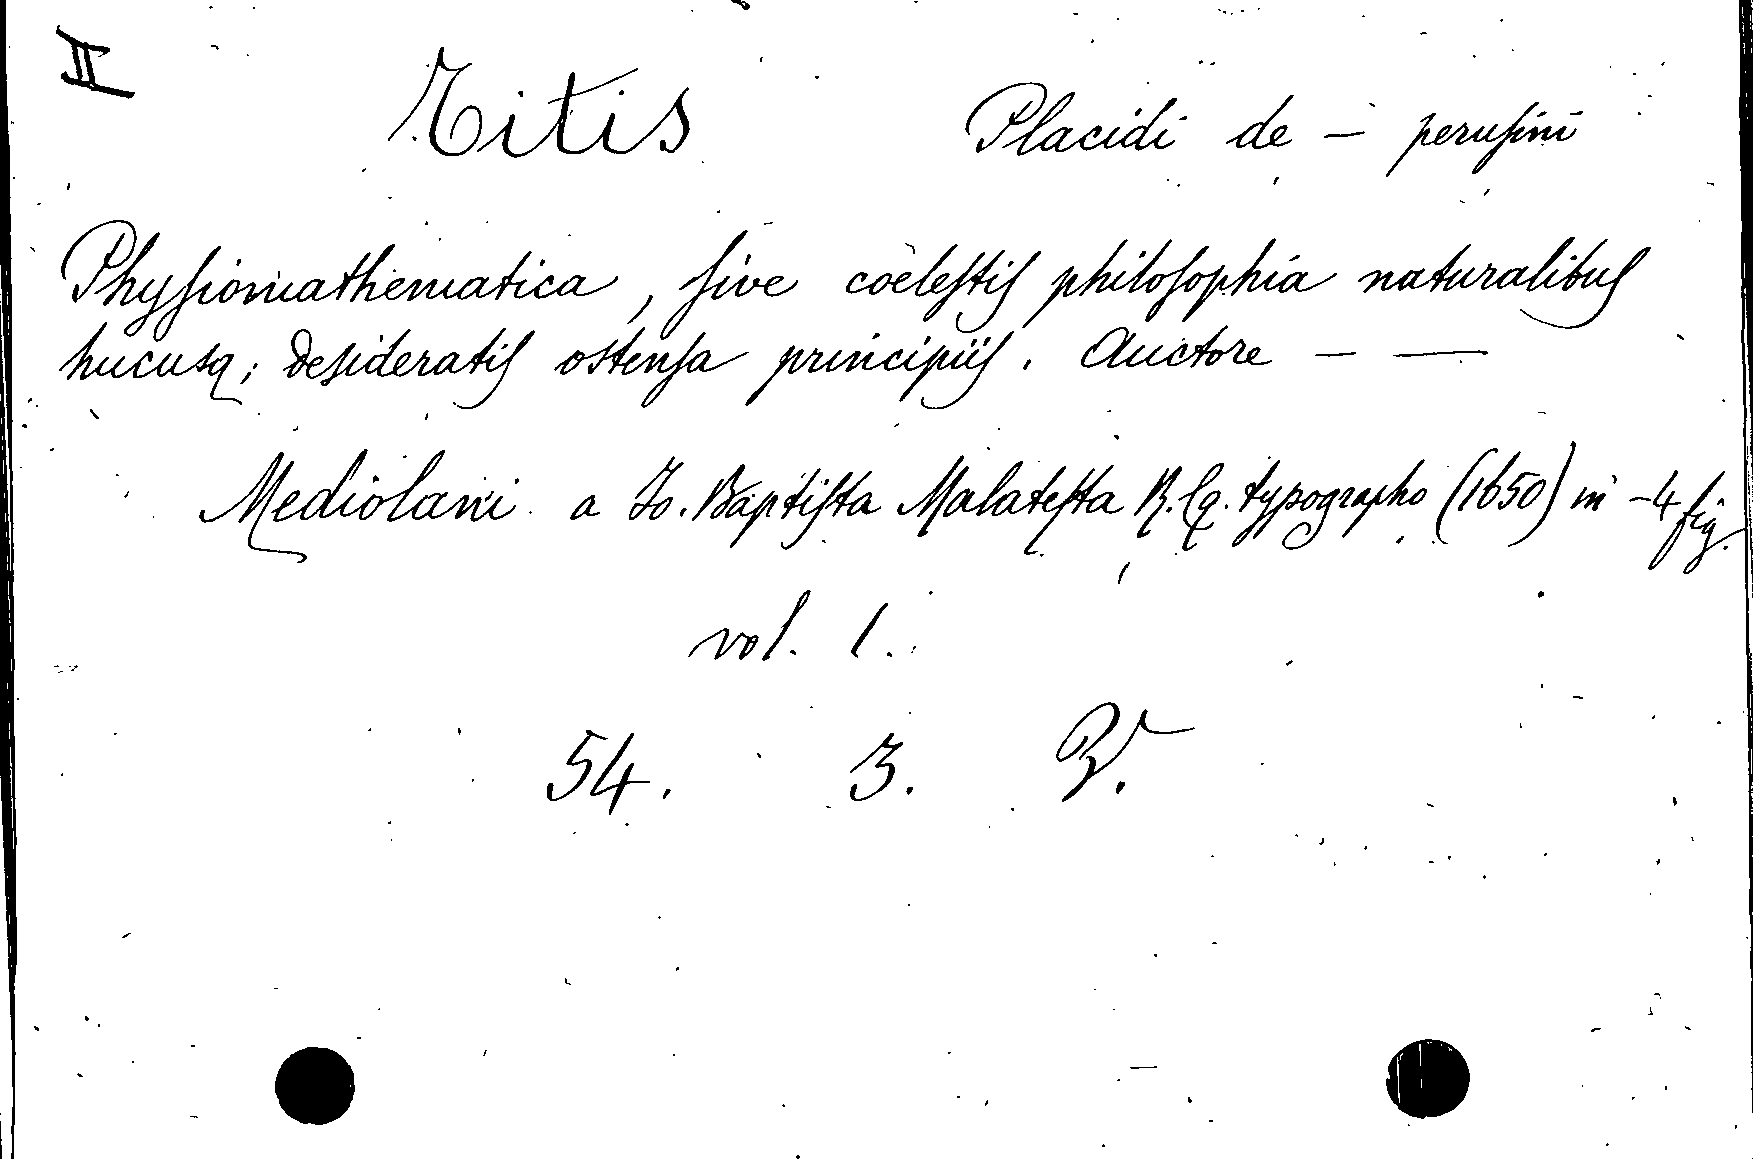 II
Titis Placidi de — perusini
Physiomathematica, sive coelestis philosophia naturalibus
hucusq; desideratis ostensa principiis. Auctore — —
Mediolani a Io. Baptista Malatesta R. C. typographo (1650) in -4 fig.
vol. 1.
54. 3.